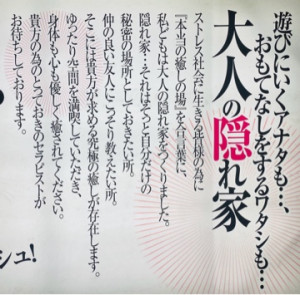 遊びにいくアナタも…、
おもてなしをするワタシも…
大人の隠れ家
ストレス社会に生きる皆様の為に
『本当の癒しの場』を合言葉に、
私どもは大人の隠れ家をつくりました。
隠れ家…それはそっと自分だけの
秘密の場所としておきたい所。
仲の良い友人にこっそり教えたい所。
そこには貴方が求める究極の癒しが存在します。
ゆったり空間を満喫していただき、
身体も心も優しく癒されてください。
貴方の為のとっておきのセラピストが
お待ちしております。
シュ!